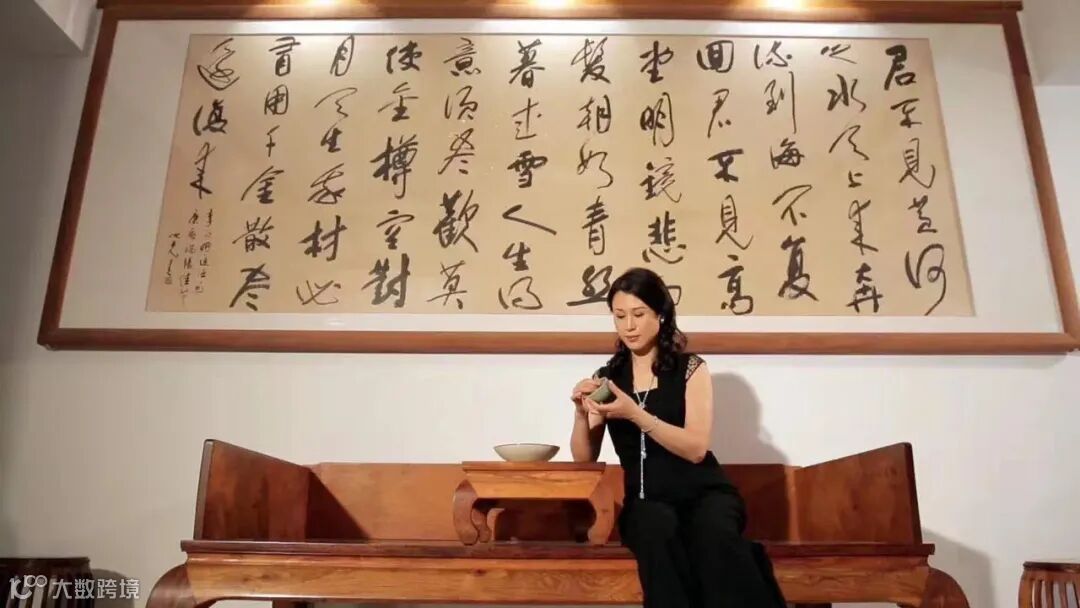 君不見黄河
之水天上来奔
流到海不復
回君不見高
堂明鏡悲白
髮朝如青丝
暮成雪人生得
意須尽歡莫
使金樽空對
月天生我材必
有用千金散尽
還復来
大数跨境